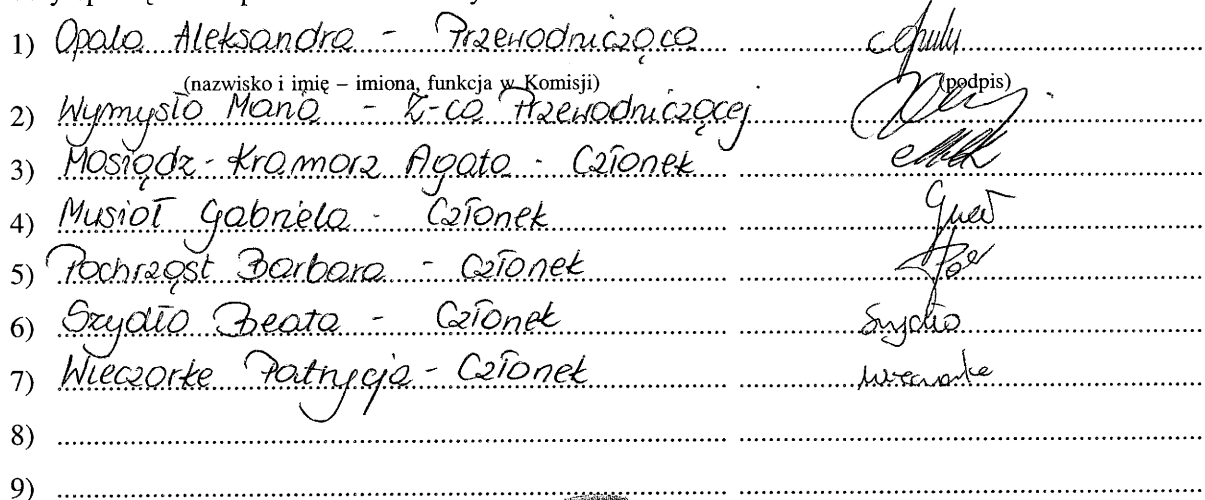 1) Opala Aleksandra - Przewodnicząca
(nazwisko i imię – imiona, funkcja w Komisji) (podpis)
2) Wymysło Maria - Z-ca Przewodniczącej
3) Mosiądz-Kramorz Agata - Członek
4) Musioł Gabriela - Członek
5) Pochrząst Barbara - Członek
6) Szydło Beata - Członek Szydło
7) Wieczorke Patrycja - Członek Wieczorke
8)
9)